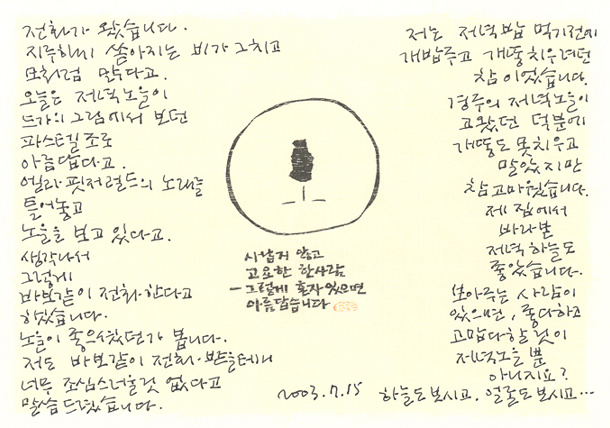 전화가 왔습니다.
지루하게 쏟아지는 비가 그치고
모처럼 맑다고.
오늘은 저녁노을이
드가의 그림에서 보던
파스텔 조로
아름답다고.
엘라 핏저럴드의 노래를
틀어놓고
노을을 보고 있다고.
생각나서
그렇게
바보같이 전화한다고
하셨습니다.
노을이 좋으셨던가 봅니다.
저도 바보같이 전화 받을테니
너무 조심스러울것 없다고
말씀드렸습니다.
시납지 않고
고요한 한사람
- 그렇게 혼자 있으면
아름답습니다
2003.7.15
저는 저녁밥 먹기전에
개밥주고 개똥치우려던
참이었습니다.
경주의 저녁노을이
고왔던 덕분에
개똥도 못치우고
말았지만
참 고마웠습니다.
제 집에서
바라본
저녁하늘도
좋았습니다.
보아주는 사람이
있으면, 좋다하고
고맙다할 것이
저녁노을 뿐
아니지요?
하늘도 보시고, 얼굴도 보시고…